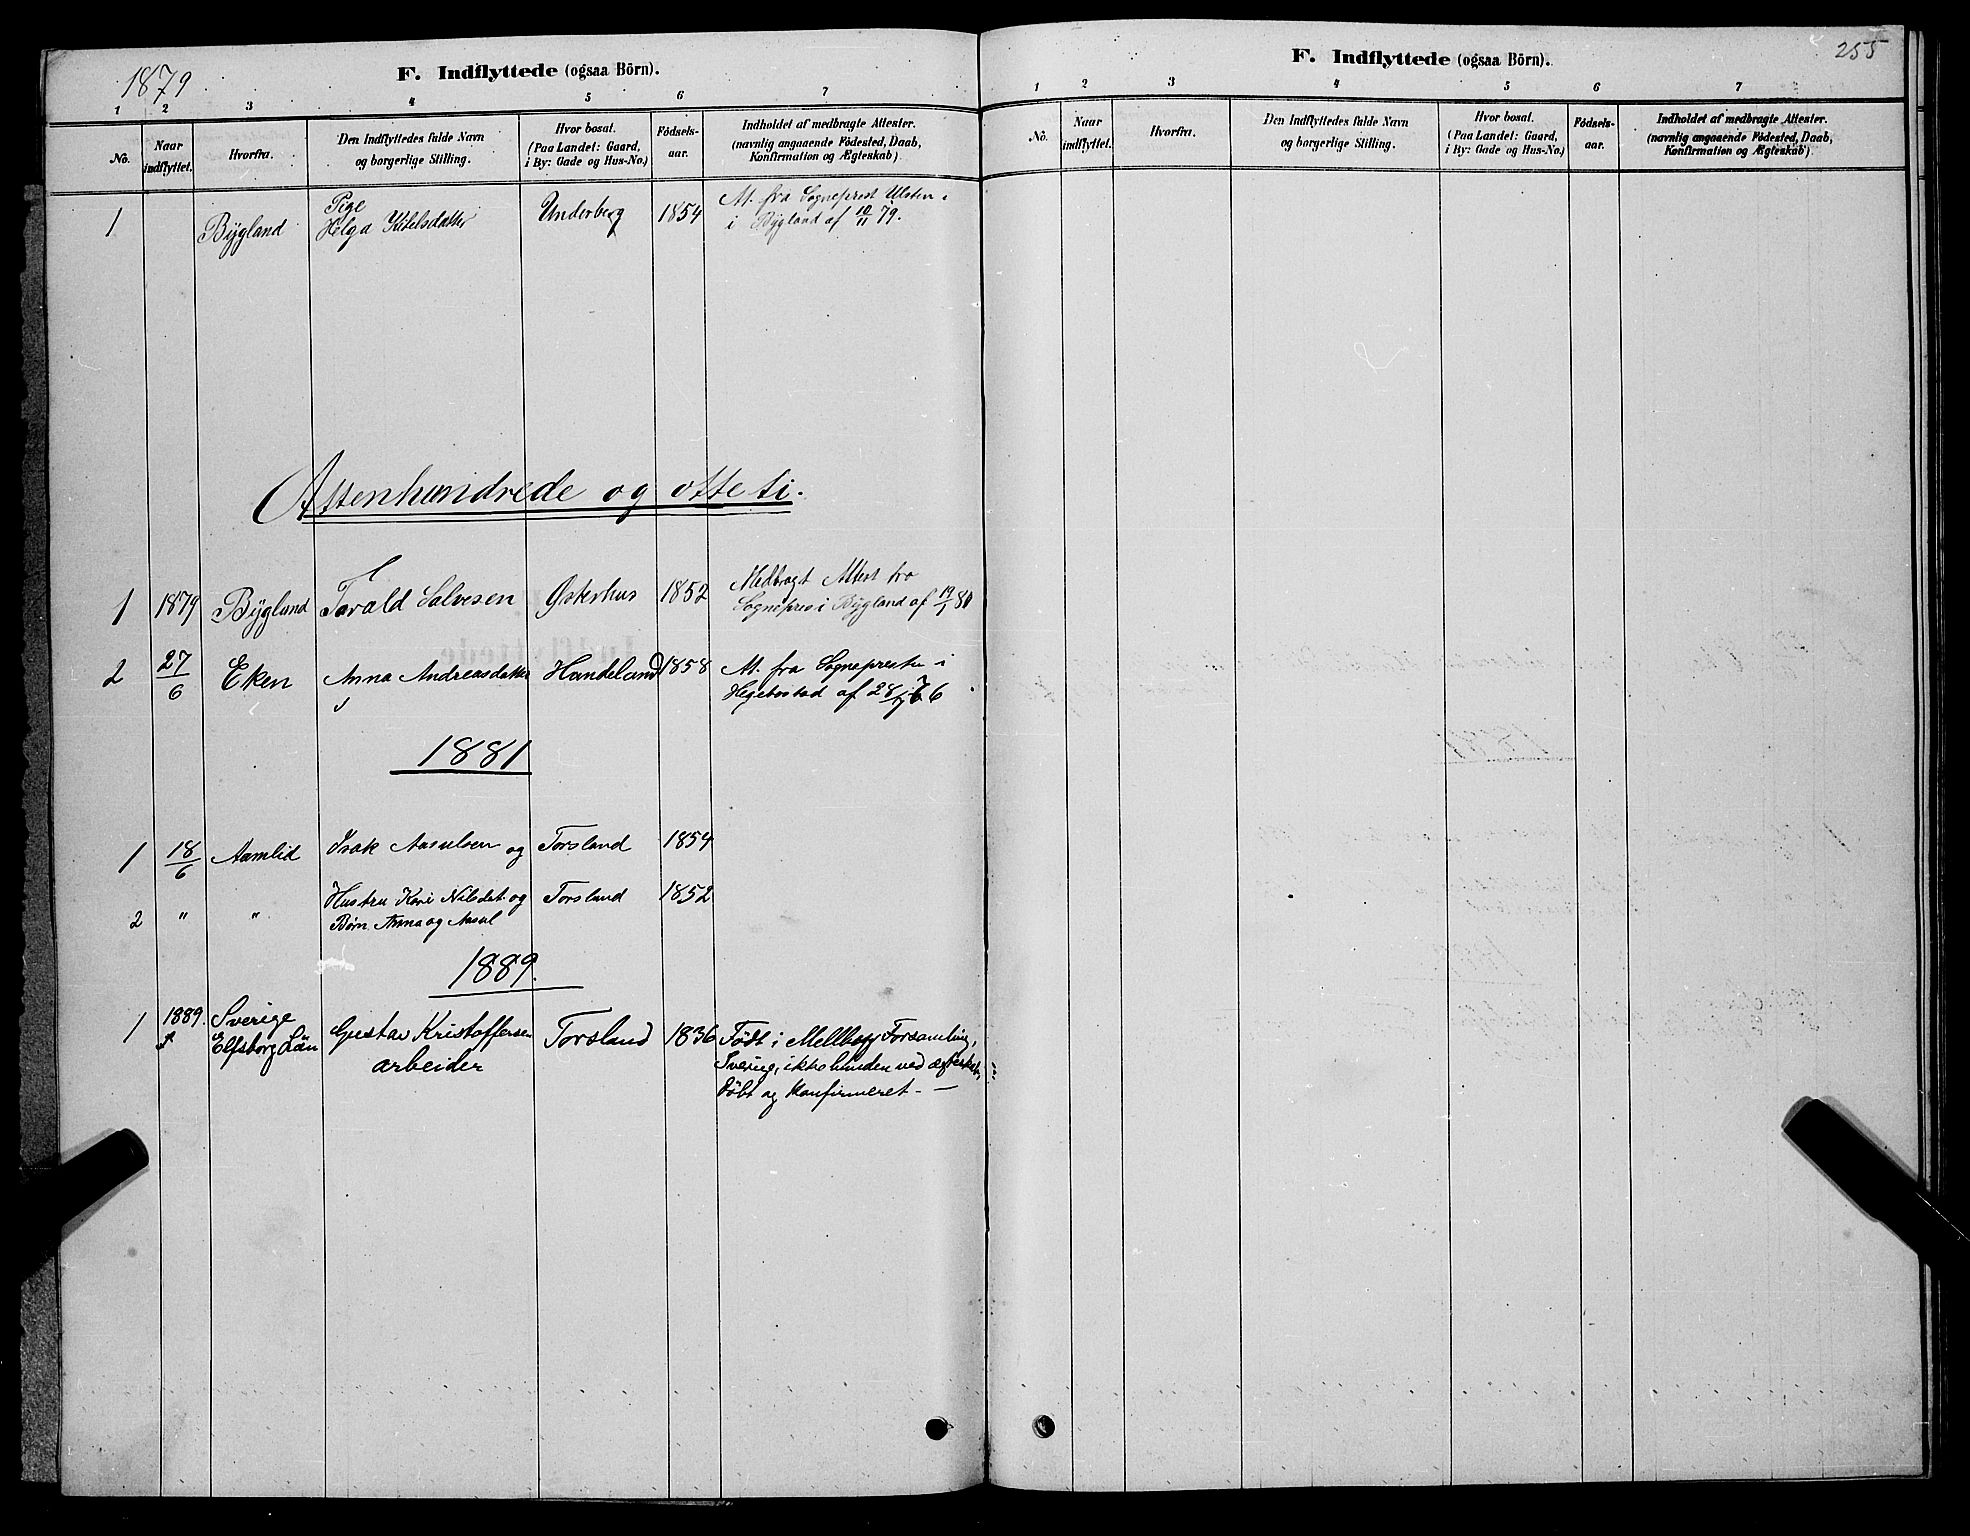 1879
F. Indflyttede (ogsaa Börn).
1 2 3 4 5 6 7
No.
Naar indflyttet.
Hvorfra.
Den Indflyttedes fulde Navn
og borgerlige Stilling.
Hvor bosat.
(Paa Landet: Gaard,
i By: Gade og Hus-No.)
Fødsels-
aar.
Indholdet af medbragte Attester.
(navnlig angaaende Födested, Daab,
Konfirmation og Ægteskab)
1 Bygland Pige
Helga Kittelsdatter Underberg 1854 At. fra Sogneprest Ulsten
i Bygland af 10/11 79.
Attenhundrede og otteti.
1 1879 Bygland Tarald Salvesen Østerhus 1852 Medbragt Attest fra
Sognepres i Bygland af 19/1 80
2 27/6 Eken Anna Andreasdatter Handeland 1858 At. fra Sognepresten i
Hegebostad af 28
1881
1 18/6 Aamlid Isak Aasulsen og Torsland 1854
2 " " Hustru Kari Nilsdat. og Torsland 1852
Børn Anna og Aasul
1889.
1 1889. Sverige
Elfsborg Län Gustav Kristoffersen
arbeider Torsland 1836 Født i Mellby Forsamling,
Sverig, ikke bunden ved ægteskab,
døbt og konfirmeret. —
F. Indflyttede (ogsaa Börn).
255
1 2 3 4 5 6 7
No.
Naar
indflyttet.
Hvorfra.
Den Indflyttedes fulde Navn
og borgerlige Stilling.
Hvor bosat.
(Paa Landet: Gaard,
i By: Gade og Hus-No.)
Fødsels-
aar.
Indholdet af medbragte Attester.
(navnlig angaaende Födested, Daab,
Konfirmation og Ægteskab)